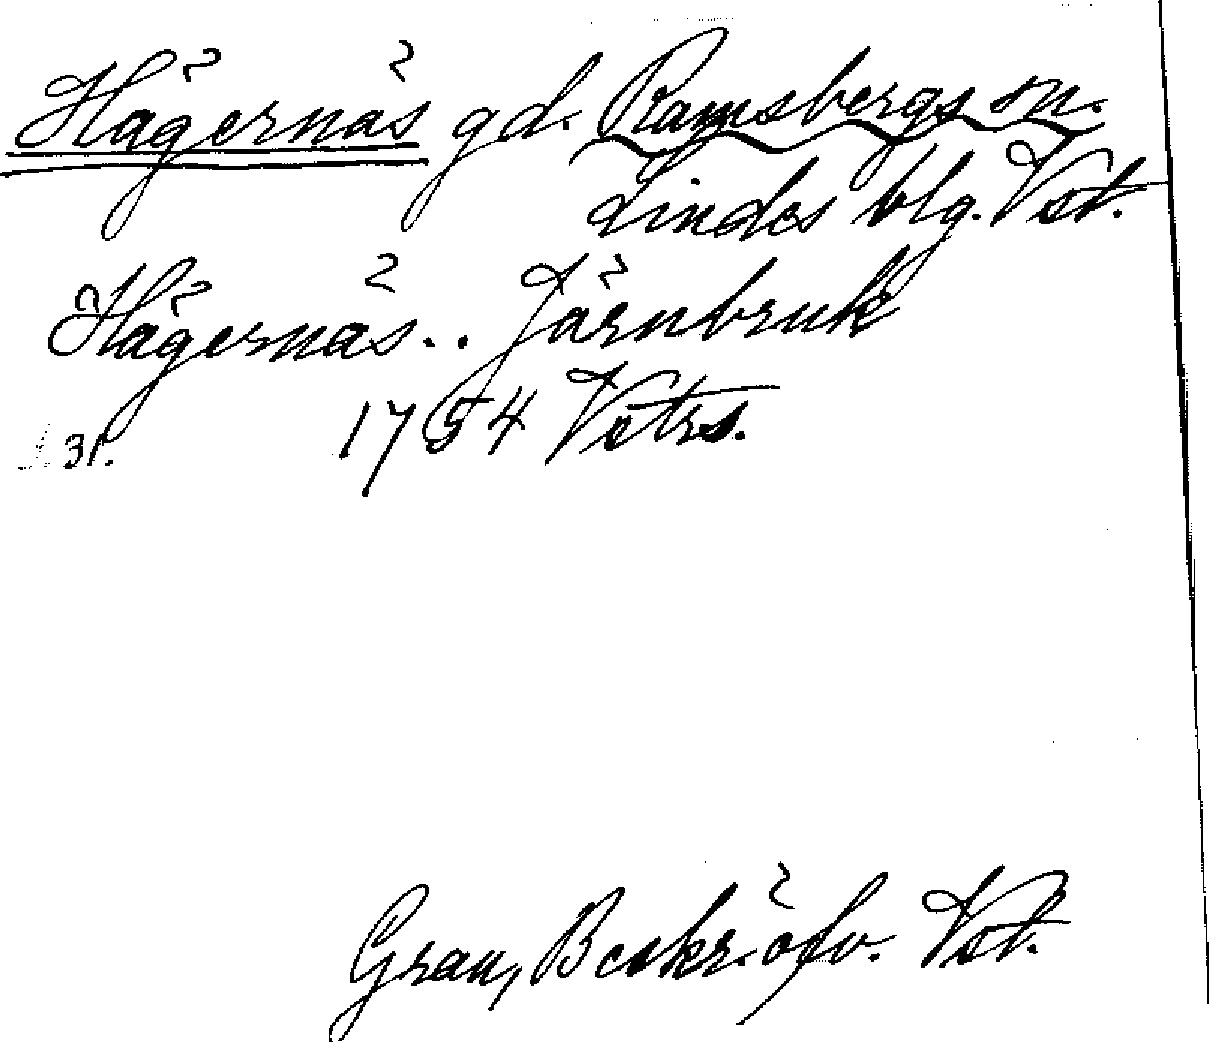 Hägernäs gd. Ramsbergs sn.
Lindes blg. Vst.
Hägernäs.. Järnbruk
1754 Vetrs.
31.
Grau, Beskr. öfv. Vst.